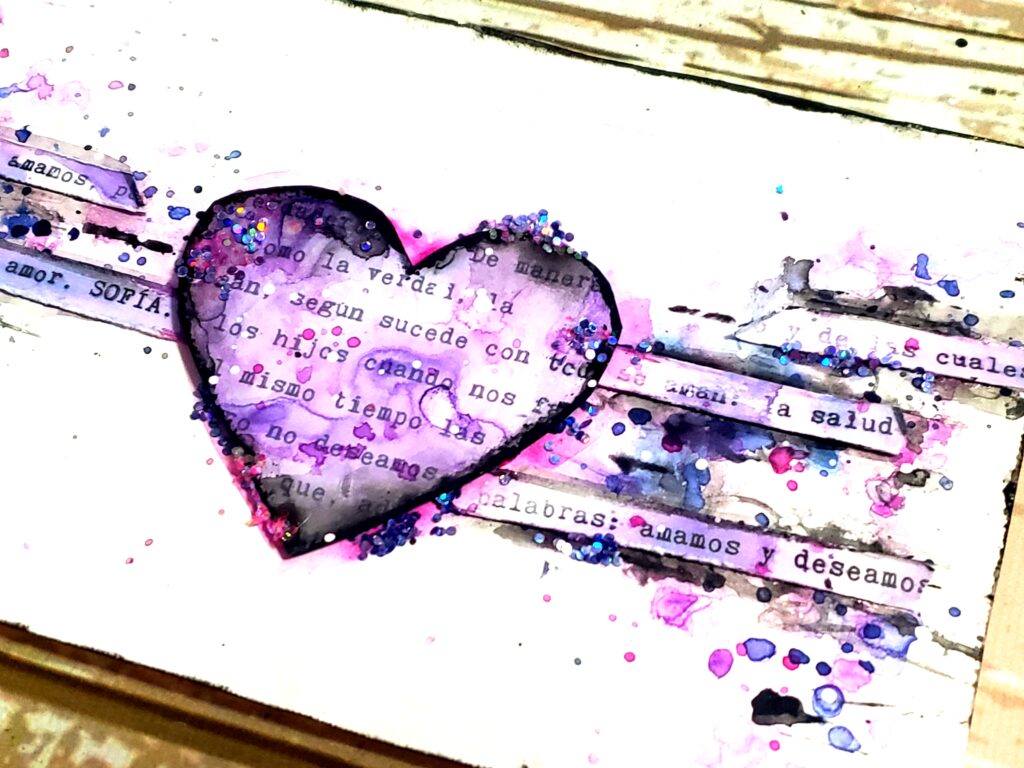 amamos,
amor. SOFÍA.
omo la verdad, la
De manera
según sucede con
los hijos cuando nos
mismo tiempo las
no deseamos
que,
y de las cuales
se aman. la salud
palabras: amamos y deseamos